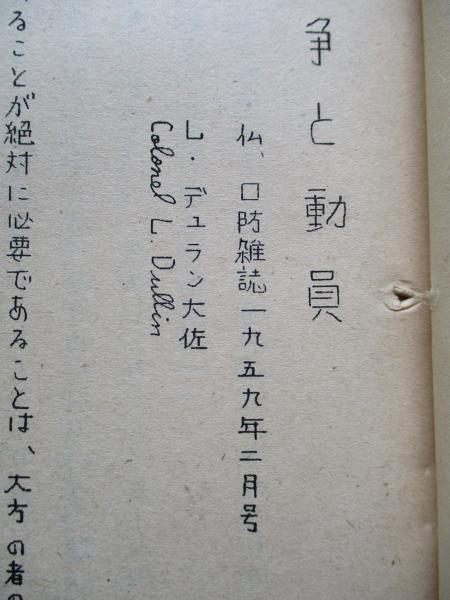 争と動員
仏、口防雑誌一九五九年二月号
L・デュラン大佐
Colonel L. Dullin
ることが絶対に必要であることは、大方の者の